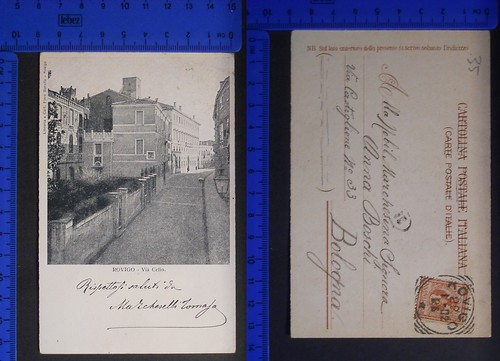 leber
ROVIGO - Via Celio.
Rispettosi saluti da
35
CARTOLINA POSTALE ITALIANA
(CARTE POSTALE D'ITALIE)
NB. Sul lato anteriore della presente si scrive soltanto l'indirizzo
Alla Nobil Marchesina Signora
Anna Boschi
Via Castiglione No 33
Bologna
ROVIGO